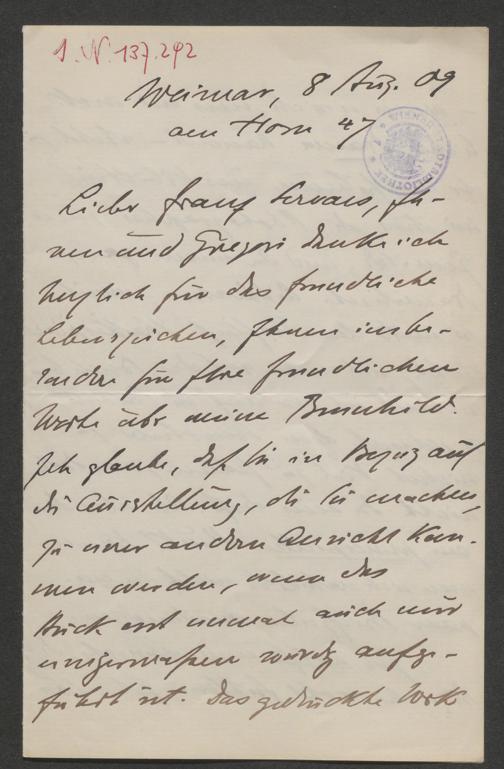 I. N. 137.292
Weimar, 8 Aug. 09
am Horn 47
Lieber Franz Servaes, Ih-
nen und Gregori danke ich
herzlich für das freundliche
Lebenszeichen, Ihnen insbe-
sondere für Ihre freundlichen
Worte über meine Brunhild.
Ich glaube, daß Sie in Bezug auf
die Ausstellung, die Sie machen,
zu einer andern Ansicht kom-
men werden, wenn das
Stück erst einmal auch nur
einigermaßen würdig aufge-
führt ist. Das gedruckte Werk